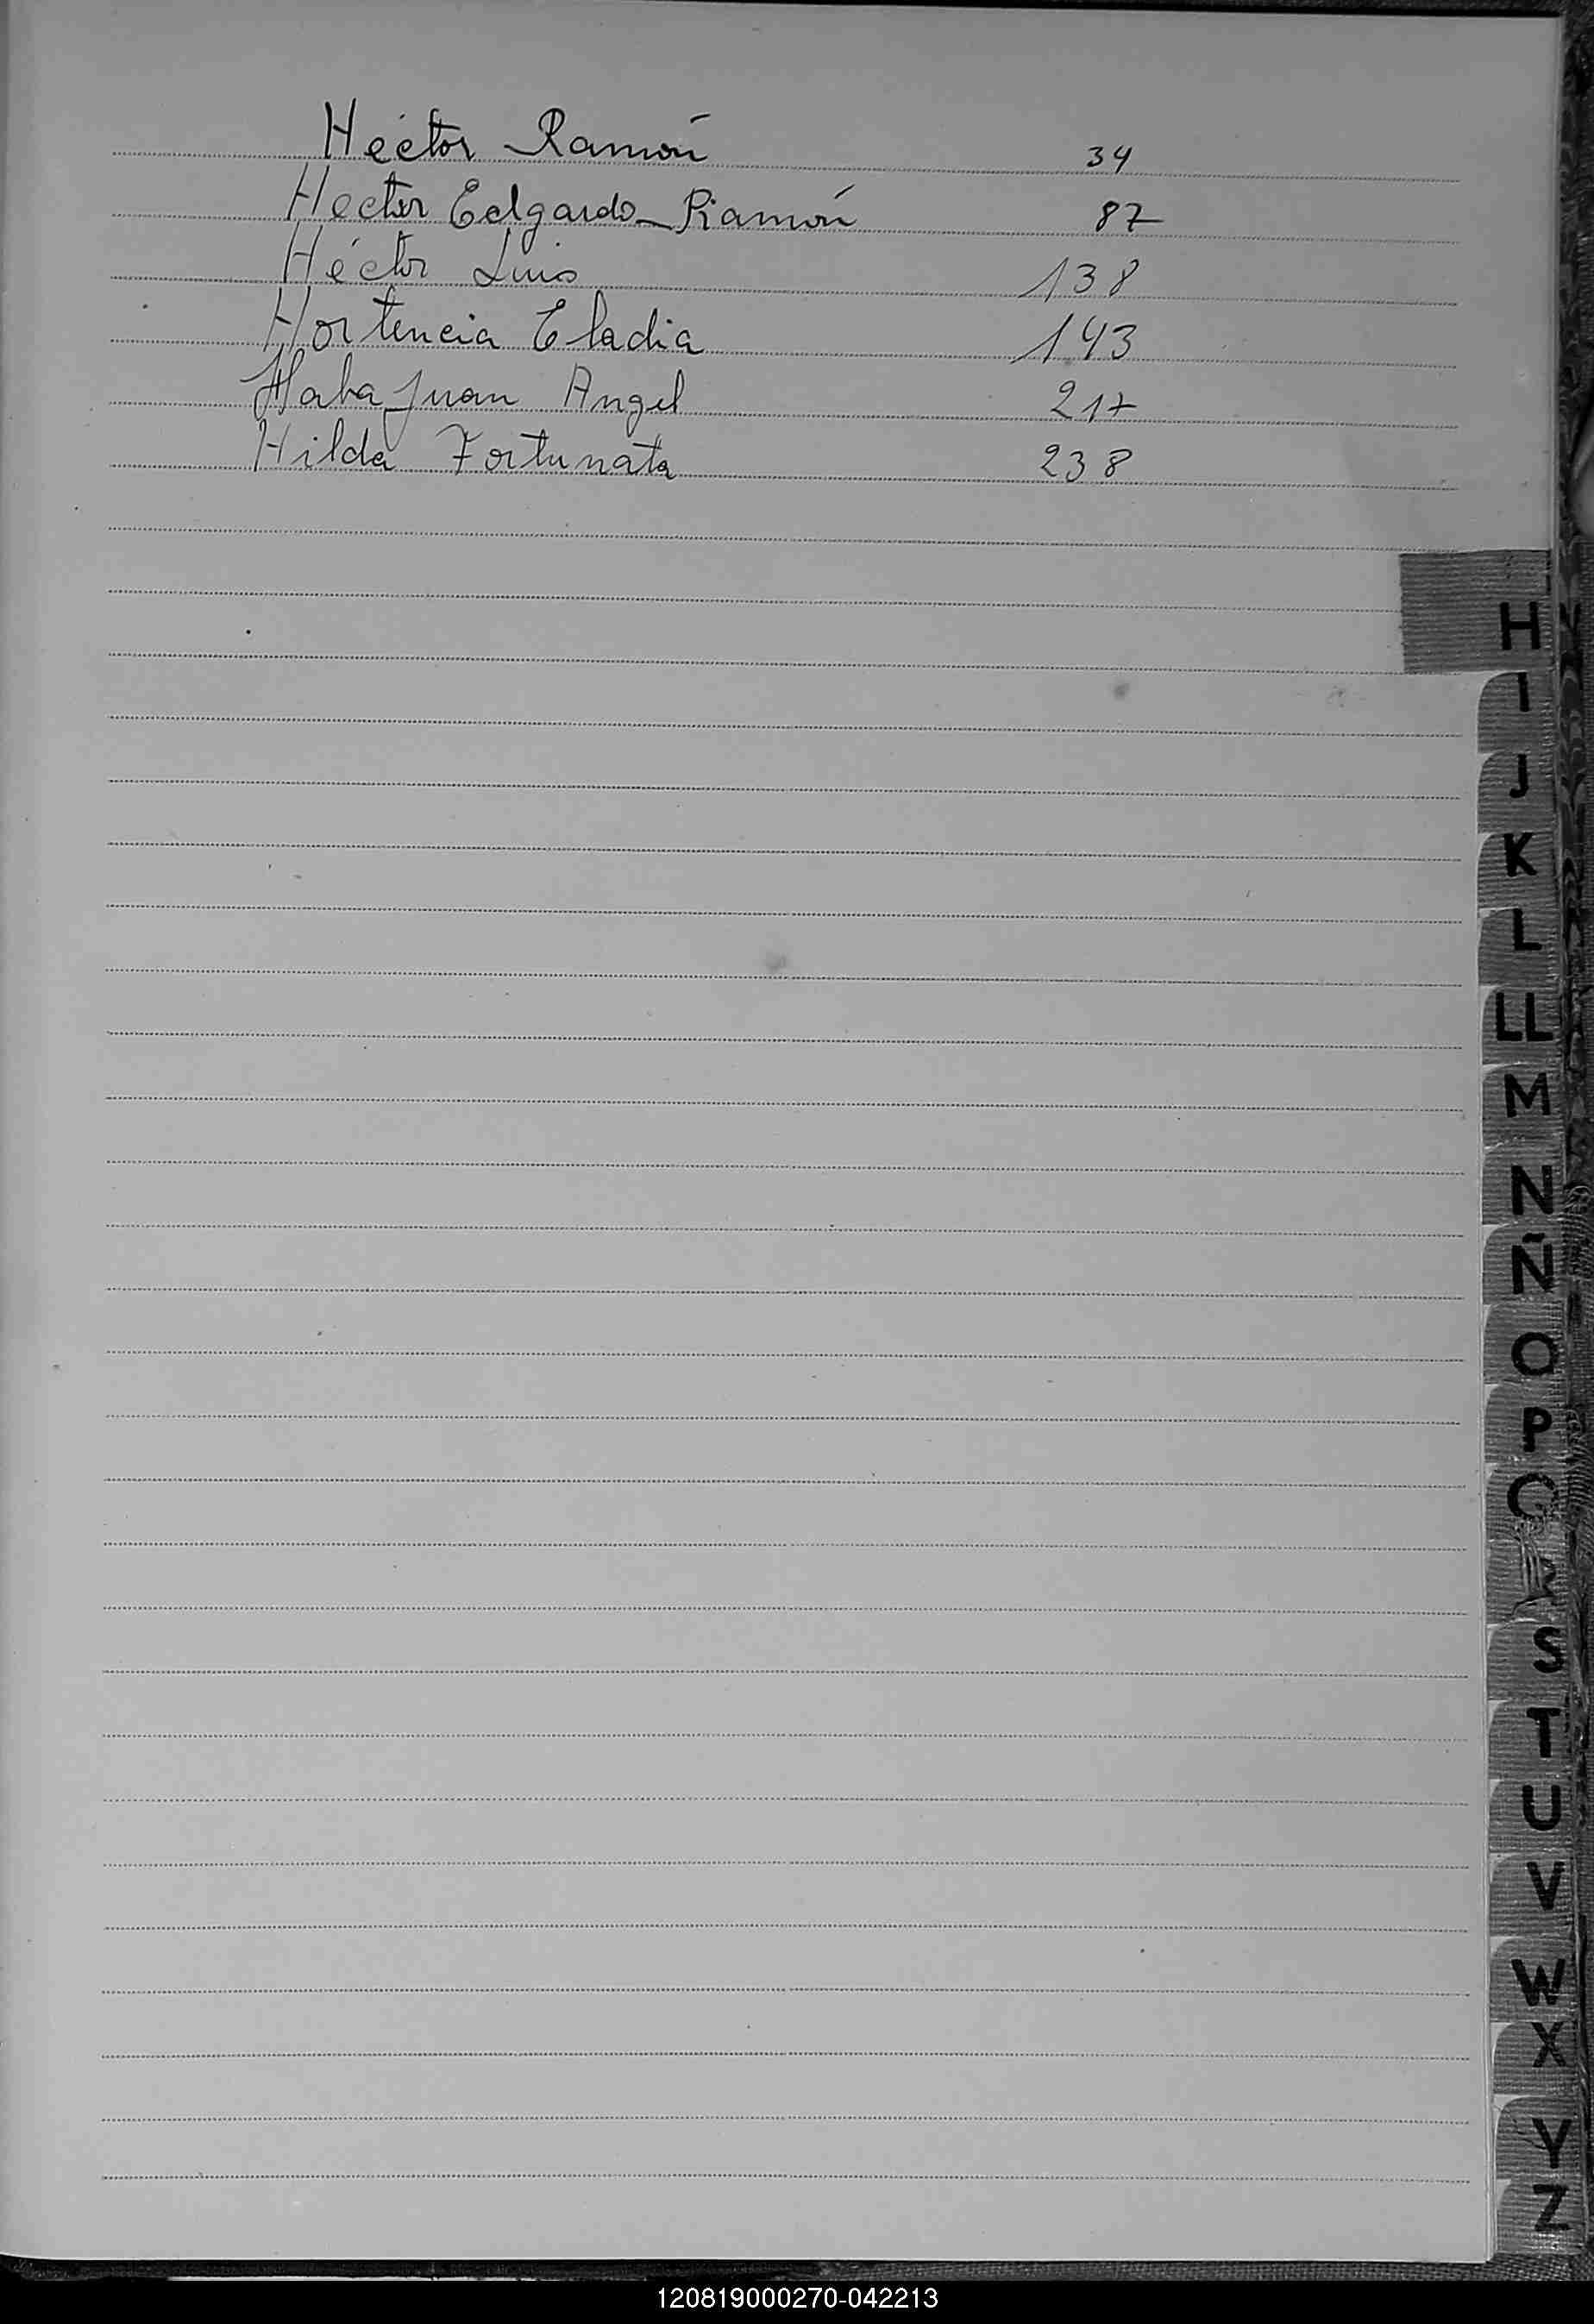 Héctor Ramón 34
Hector Edgardo Ramón 87
Héctor Luis 138
Hortencia Eladia 143
Juan Angel 217
Hilda Fortunata 238
H
I
J
K
L
LL
M
N
Ñ
O
P
Q
S
T
U
V
W
X
Y
Z
120819000270-042213